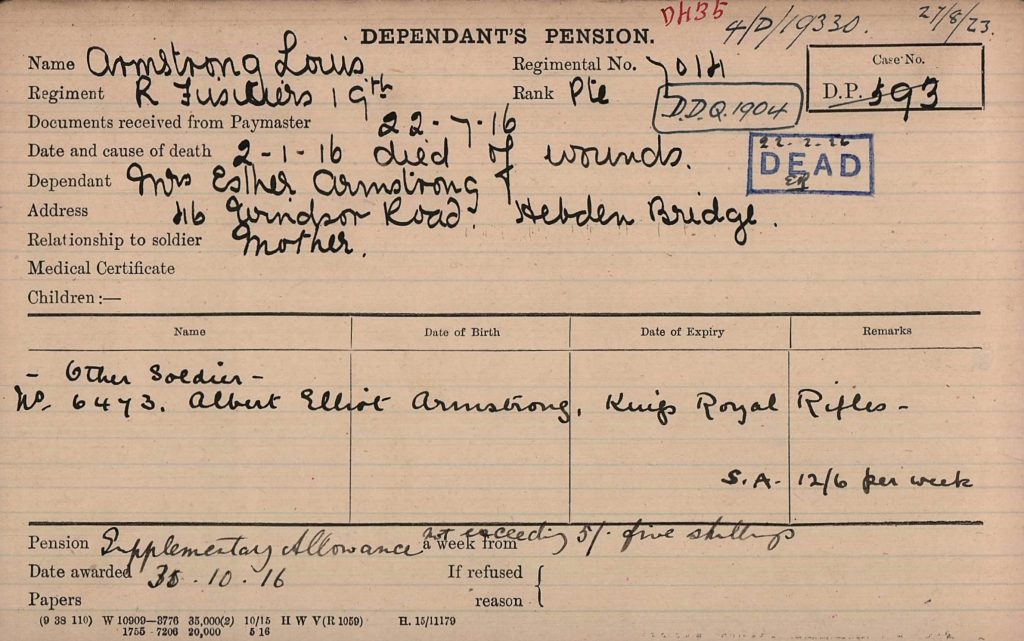 DH35 4/D/19330. 27/8/23.
DEPENDANT'S PENSION.
Name Armstrong Louis Regimental No. 7014 Case No.
Regiment R Fusiliers 19th Rank Pte D.D.Q. 1904 D.P. 593
Documents received from Paymaster 22-7-16
Date and cause of death 2-1-16 died of wounds. 22-2-26
Dependant Mrs Esther Armstrong DEAD
Address 46 Windsor Road. Hebden Bridge.
Relationship to soldier Mother.
Medical Certificate
Children :—
Name Date of Birth Date of Expiry Remarks
- Other Soldier -
No. 6473. Albert Elliot Armstrong, Kings Royal Rifles -
S.A. 12/6 per week
Pension Supplementary Allowance a week from not exceeding 5/- five shillings
Date awarded 10.16 If refused
Papers reason
(9 38 110) W 10909—3776 35,000(2) 10/15 H W V(R 1059) H. 15/11179
1755 - 7206 20,000 5 16